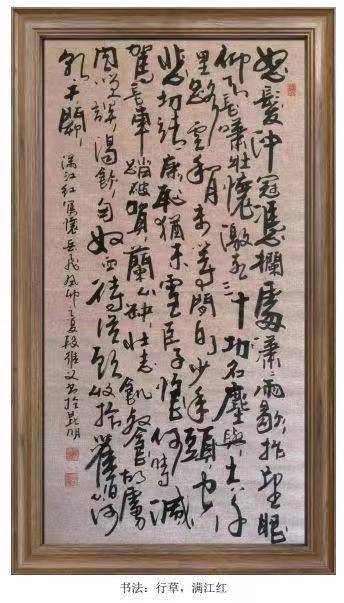 怒髮沖冠憑欄處瀟瀟雨歇抬望眼
仰天長嘯壯懷激烈三十功名塵與土八千
里路雲和月莫等閒白了少年頭空
悲切靖康恥猶未雪臣子恨何時滅
駕長車踏破賀蘭山缺壯志飢餐胡虜
肉笑談渴飲匈奴血待從頭收拾舊山河
朝天闕 滿江紅寫懷岳飛癸卯之夏段書於昆明
书法：行草，满江红